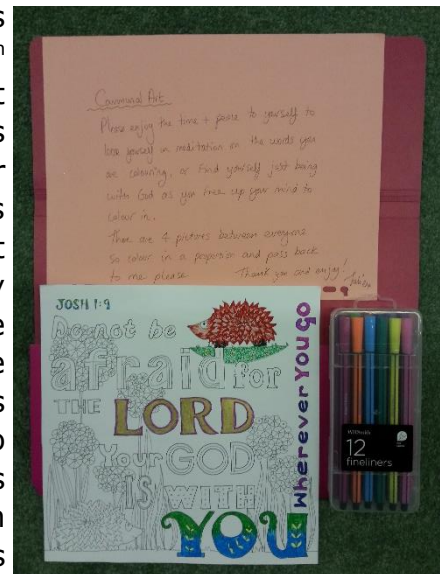 Communal Art
Please enjoy the time + peace to yourself to
lose yourself in meditation on the words you
are colouring, or find yourself just being
with God as you free up your mind to
colour in.
There are 4 pictures between everyone
so colour in a proportion and pass back
to me please Thank you and enjoy!
JOSH 1:9
Do not be
afraid for
THE LORD
Your GOD
IS WITH
YOU
Wherever You Go
12
fineliners